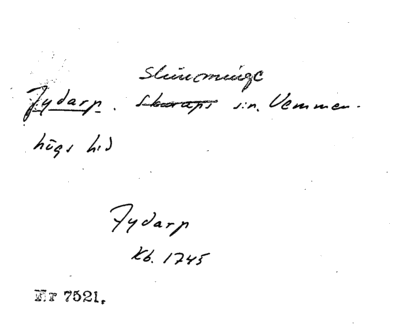 Slimminge
Jydarp. Skurups sn, Vemmen-
högs hd
Jydarp
Kb. 1745
Nr 7521.